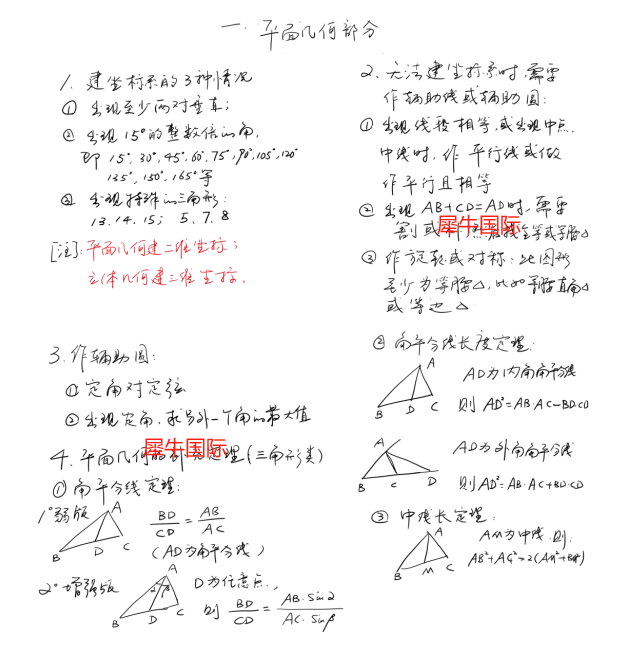 一. 平面几何部分
1. 建坐标系的3种情况
① 出现至少两对垂直;
② 出现15°的整数倍的角,
即 15°, 30°, 45°, 60°, 75°, 90°, 105°, 120°
135°, 150°, 165° 等
③ 出现特殊的三角形:
13. 14. 15; 5. 7. 8
[注]: 平面几何建二维坐标;
立体几何建三维坐标.
2. 无法建坐标系时, 需要
作辅助线或辅助圆:
① 出现线段相等, 或出现中点,
中线时, 作平行线或做
作平行且相等
② 出现 AB+CD=AD时, 需要
割或
犀牛国际
全等或等腰△
③ 作旋转或对称: 此图形
至少为等腰△, 比如等腰直角△
或等边△
3. 作辅助圆:
① 定角对定弦
② 出现定角, 求另外一个角的最大值
4. 平面几何的
犀牛国际
定理(三角形类)
① 角平分线定理:
1° 弱版
A
B
D
C
BD/CD = AB/AC
(AD为角平分线)
2° 增强版
A
α β
B
D
C
D为任意点,
则 BD/CD = AB·Sinα/AC·Sinβ
② 角平分线长度定理:
A
B
D
C
AD为内角角平分线
则 AD²=AB·AC-BD·CD
A
B
C
D
AD为外角角平分线
则AD²=AB·AC+BD·CD
③ 中线长定理:
A
B
M
C
AM为中线, 则:
AB²+AC²=2(AM²+BM²)